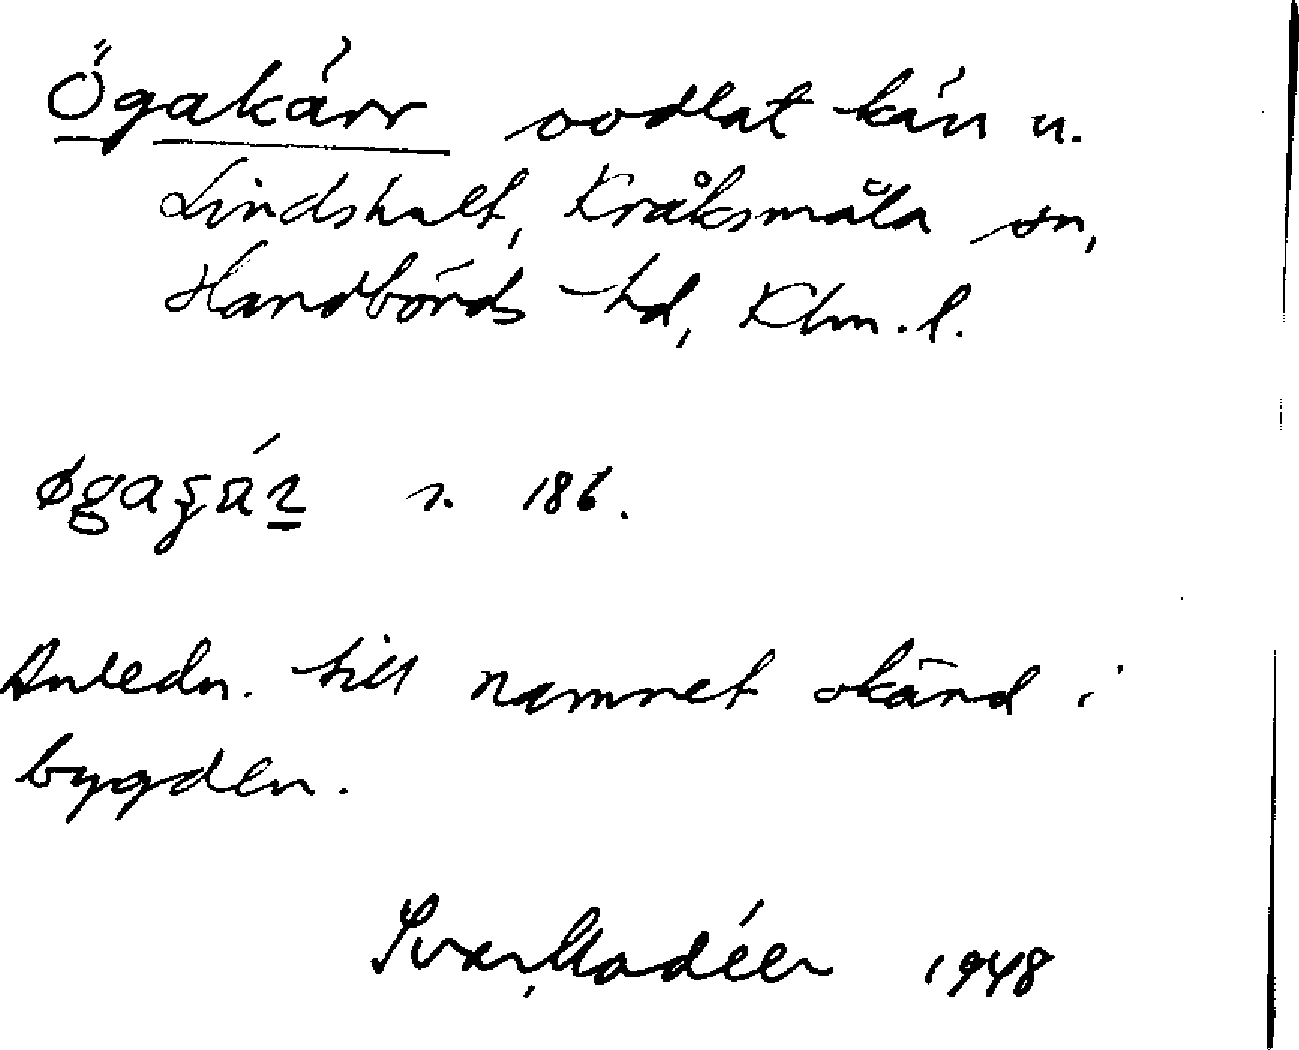 Ögakärr oodlat kärr u.
Lindshult, Kråksmåla sn,
Handbörds hd, Klm. l.
s. 186.
Anledn. till namnet okänd i
bygden.
Ivar Modéer 1948